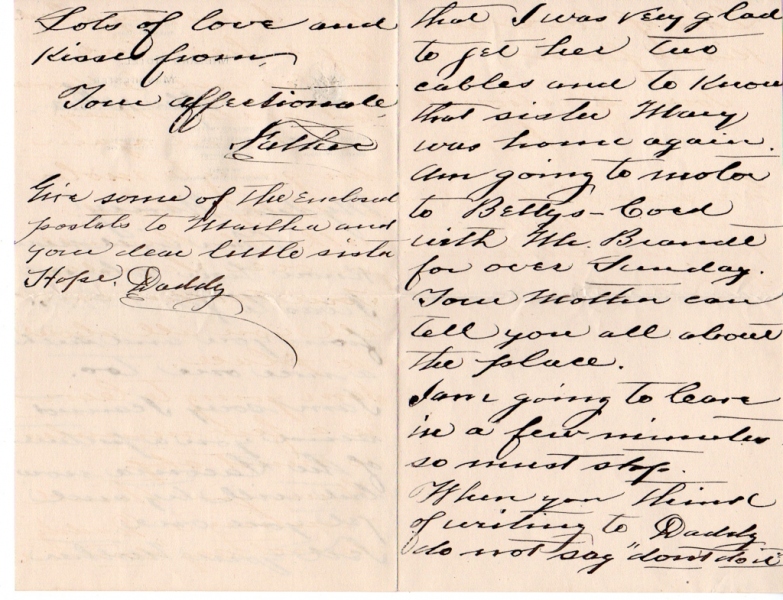 that I was very glad
to get her two
cables and to know
that sister Mary
was home again.
Am going to motor
to Bettys-Coed
with Mr. Brandt
for over Sunday.
Your Mother can
tell you all about
the place.
I am going to leave
in a few minutes
so must stop.
When you think
of writing to Daddy
do not say "don't do it"
Lots of love and
Kisses from
Your affectionate
Father
Give some of the enclosed
postals to Martha and
your dear little sister
Hope. Daddy